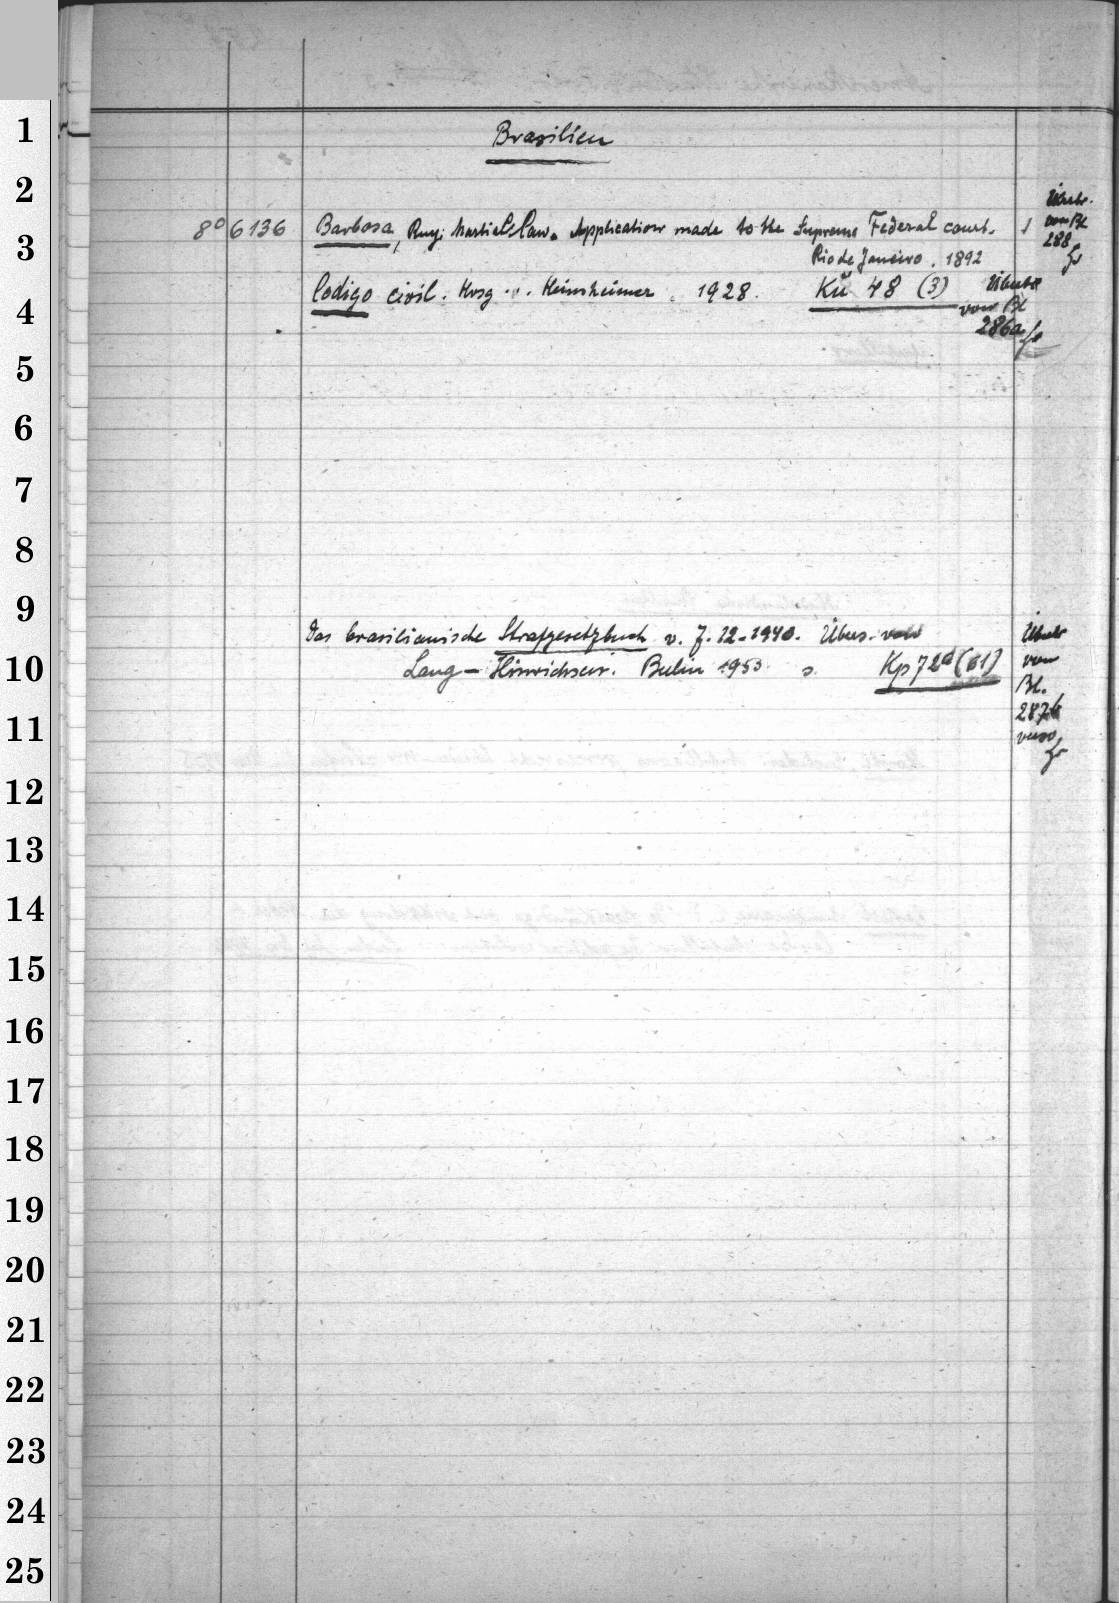 Brasilien
8° 6136 Barbosa, Ruy: Martial Law. Application made to the Supreme Federal court. 1
Rio de Janeiro. 1892
Übertr.
von Bl
288
Codigo civil. Hrsg. v. Heinsheimer. 1928. Kü 48 (3)
Übertr
von Bl
286a
Das brasilianische Strafgesetzbuch v. 7.12.1940. Übers. von
Lang-Hinrichsen. Berlin 1953 s. Kp 72d (61)
Übertr
von
Bl.
287b
verso
1
2
3
4
5
6
7
8
9
10
11
12
13
14
15
16
17
18
19
20
21
22
23
24
25